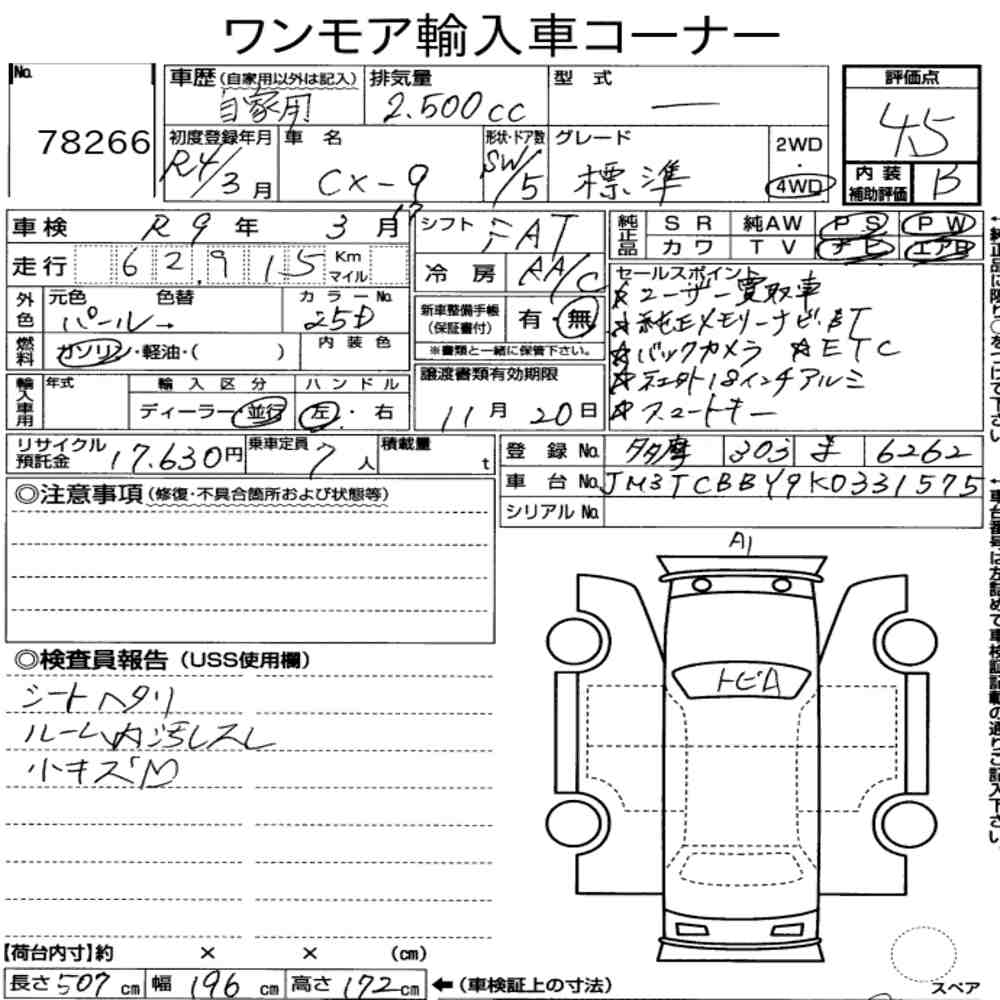 ワンモア輸入車コーナー
No. 78266
車歴 (自家用以外は記入) 自家用
排気量 2.500cc
型式 ―
評価点 4.5
初度登録年月 R4/3月
車名 CX-9
形状・ドア数 SW/5
グレード 標準
2WD
・
4WD
内装補助評価 B
車検 R9年 3月
シフト FAT
純正品 SR 純AW PS PW
カワ TV ナビ エアB
走行 62,915 Km マイル
冷房 AA/C
外色 元色 色替 パール→
カラーNo. 25D
新車整備手帳 (保証書付) 有・無
※書類と一緒に保管下さい。
燃料 ガソリン・軽油・( )
内装色
セールスポイント
☆ユーザー買取車
☆純正メモリーナビ・BT
☆バックカメラ ☆ETC
☆社外18インチアルミ
☆スマートキー
輸入車用 年式
輸入区分 ディーラー・並行
ハンドル 左・右
譲渡書類有効期限 11月20日
リサイクル預託金 17.630円
乗車定員 7人
積載量 t
登録No. 多摩 303 ま 6262
車台No. JM3TCBBY9K0331575
シリアルNo.
◎注意事項 (修復・不具合箇所および状態等)
A1
トビA
◎検査員報告 (USS使用欄)
シートヘタリ
ルーム内汚レスレ
小キズ
【荷台内寸】約 × × (cm)
長さ 507 cm 幅 196 cm 高さ 172 cm ←(車検証上の寸法)
スペア
↑純正品に限り○をつけて下さい。
↑車台番号は左詰めで車検証記載の通りご記入下さい。